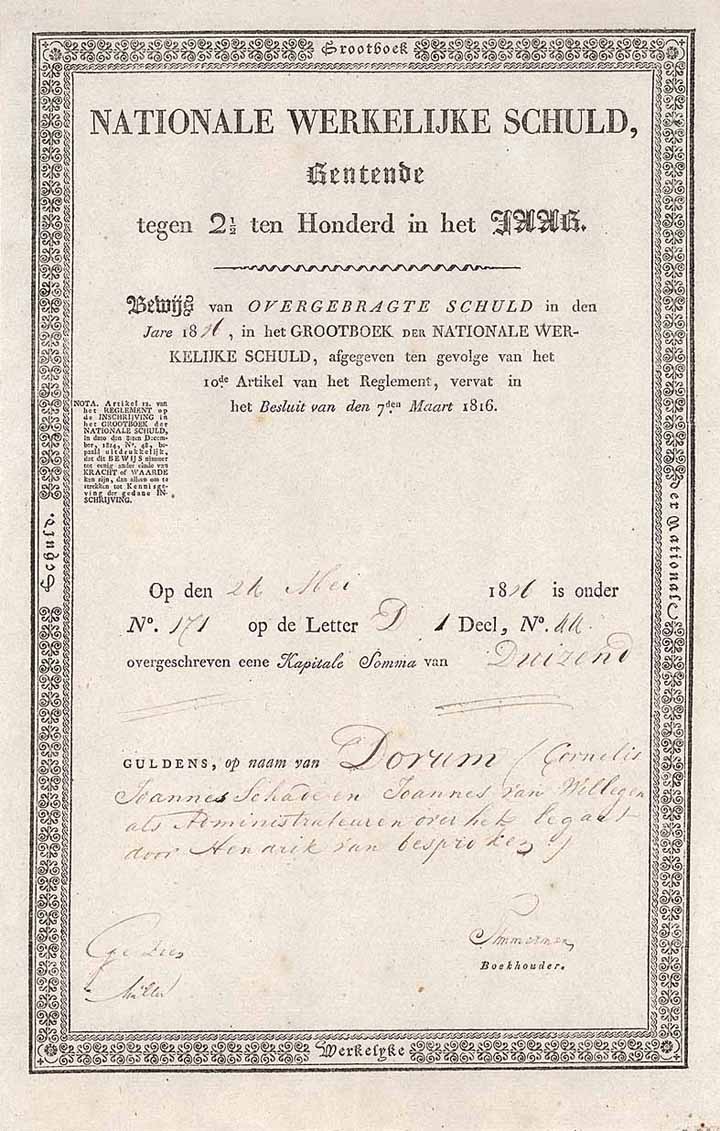 Grootboek
NATIONALE WERKELIJKE SCHULD,
Rentende
tegen 2½ ten Honderd in het JAAR.
Bewijs van OVERGEBRAGTE SCHULD in den
Jare 18 , in het GROOTBOEK DER NATIONALE WER-
KELIJKE SCHULD, afgegeven ten gevolge van het
10de Artikel van het Reglement, vervat in
het Besluit van den 7den Maart 1816.
NOTA. Artikel 12. van
het REGLEMENT op
de INSCHRIJVING in
het GROOTBOEK der
NATIONALE SCHULD,
in dato den 22sten Decem-
ber, 1814, No. 48, be-
paald uitdrukkelijk,
dat dit BEWIJS nimmer
tot eenig ander einde van
KRACHT of WAARDE
kan zijn, dan alleen om te
strekken tot Kennisge-
ving der gedane IN-
SCHRIJVING.
Op den Mei 18 is onder
No. 171 op de Letter D 1 Deel, No.
overgeschreven eene Kapitale Somma van Duizend
GULDENS, op naam van Dorum (Cornelis
Joannes Schade en Joannes van Willegen
als Administrateuren over het legaat
door Hendrik van besproken)
Timmerman
Boekhouder.
Müller
Schuld.
der Nationale
Werkelyke